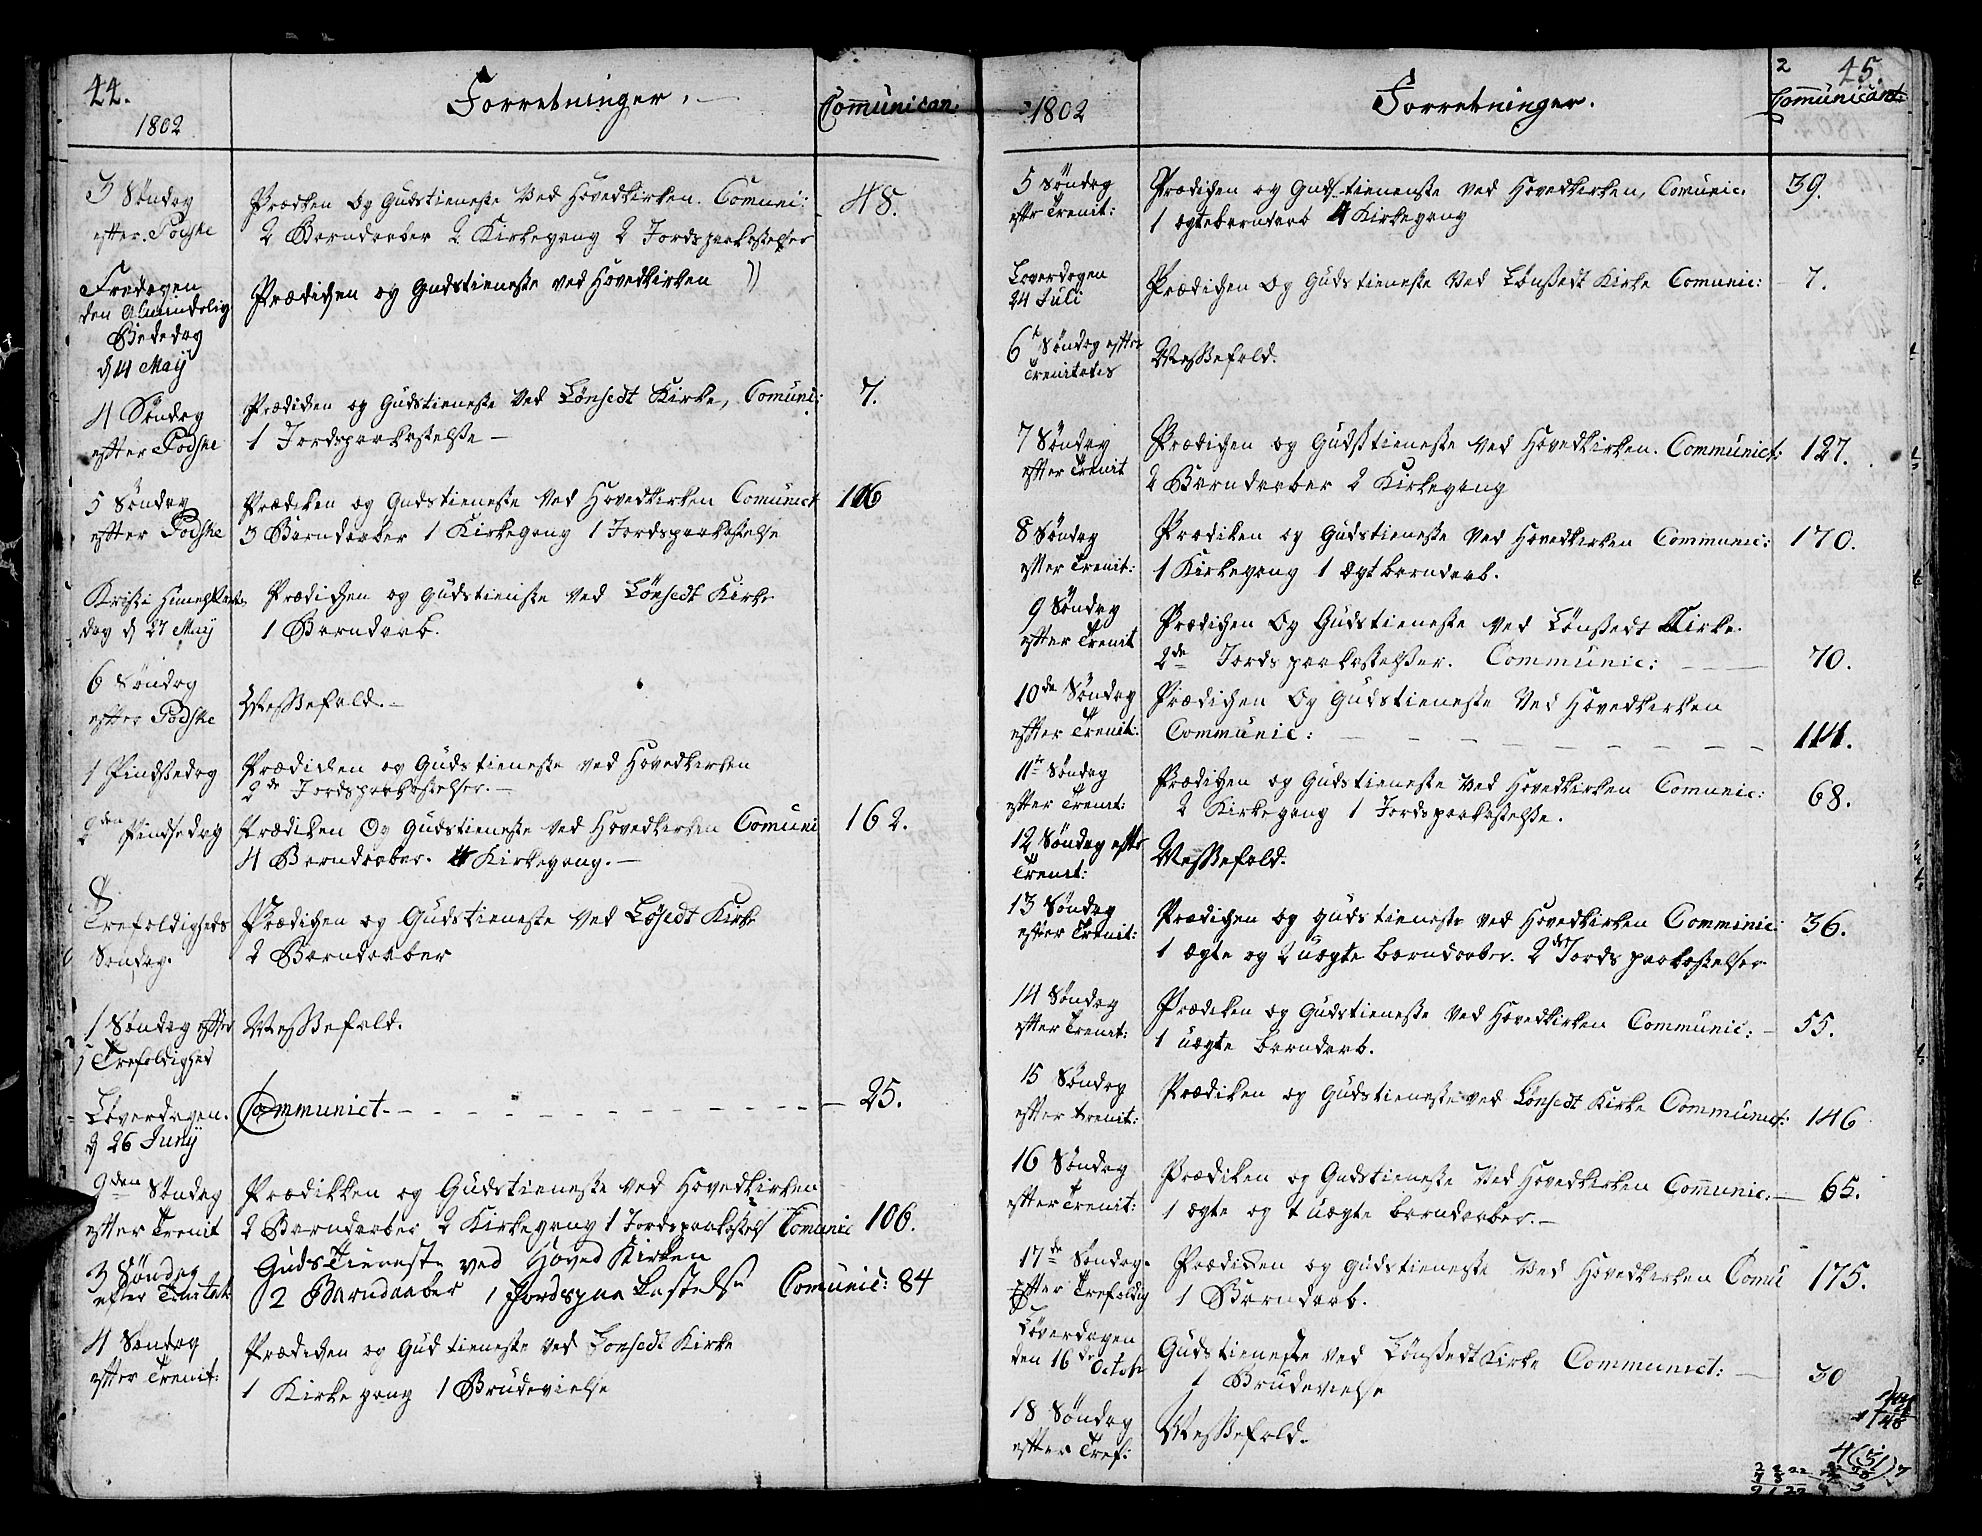 44.
1802
Forretninger.
Comunican.
3 Søndag
efter Poıske
Prædken og Gudstieneste Ved Hovedkirken. Comuni: 48.
2 Barndaaber 2 Kirkegang 2 Jordspaakastelser
Fredagen
den Almindelig
Bededag
d 14 Maÿ
Prædichen og Gudstieneste ved Hovedkirken
4 Søndag
efter Podske
Prædichen og Gudstieneste Ved Lønsedt Kirke, Comuni: 7.
1 Jordspaakastelse
5 Søndag
efter Podske
Prædiken og Gudstieneste Ved Hovedkirken Comunict 106
3 Barndaaber 1 Kirkegang 1 Jordspaakastelse
Kristi Himelf
dag d 27 Maÿ
Prædichen og Gudstieneste Ved Lønsedt Kirke
1 Barndaab.
6 Søndag
efter Podske
Messefald.
1 Pindsedag
Prædichen og Gudstieneste ved Hovedkirken
2de Jordspaakastelser.
2den Pindsedag
Prædiken Og Gudstieneste Ved Hovedkirken Comuni 162.
4 Barndaaber. 4 Kirkegang.
Trefoldigheds
Søndag.
Prædichen og Gudstieneste Ved Løsedt Kirke
2 Barndaaber
1 Søndag efter
Trefoldighed
Messefald.
Løverdagen.
d 26 Junÿ
Communict. 25.
2den Søndag
efter Trenit
Prædikken og Gudstieneste ved Hovedkirken
2 Barndaaber 2 Kirkegang 1 Jordspaakastels Comunic 106.
3 Søndag
efter Trinitat
GudsTieneste ved Hoved Kirken
2 Barndaaber 1 Jordspaa Kastelse Comunic: 84
4 Søndag
efter Trenit:
Prædichen og Gudstieneste Ved Lonsedt Kirke
1 Kirkegang 1 Brudevielse
1802
Forretninger.
2 45.
Comunicant
5 Søndag
efter Trenit:
Prædichen og Gudstienenste Ved Hovedkirken, Comunic. 39.
1 ægtebarndaab 4 Kirkegang
Løverdagen
24 Juli
Prædichen Og Gudstieneste Ved Lønssedt Kirke Comunic: 7.
6 Søndag efter
Trenitatis
Messefald.
7 Søndag
efter Trenit
Prædichen og Gudstieneste Ved Hovedkirken. Communict: 127.
2 Barndaaber 2 Kirkegang
8 Søndag
efter Trenit:
Prædiken og Gudstieneste Ved Hovedkirken Communic: 170.
1 Kirkegang 1 Ægt barndaab.
9 Søndag
efter Trenit
Prædichen Og Gudstieneste Ved Lønssedt Kirke.
2de Jordspaakastelser. Communic: 70.
10de Søndag
efter Trenit:
Prædichen Og Gudstieneste Ved Hovedkirken
Communic: 114.
11te Søndag
efter Trenit:
Prædichen og Gudstieneste Ved Hovedkirken Comunic: 68.
2 Kirkegang 1 Jordspaakastelse.
12 Søndag efter
Trenit:
Messefald.
13 Søndag
efter Trenit:
Prædichen og gudstieneste ved Hovedkirken Comminic: 36.
1 ægte og 2 uægte barndaaber. 2de Jordspaakastelser
14 Søndag
efter Trenit:
Prædeken og Gudstieneste Ved Hovedkirken Communic: 55.
1 uægte barndaab.
15 Søndag
efter trenit:
Prædiken og Gudstieneste ved Lønsedt Kirke Communict: 146
16 Søndag
efter Trenit:
Prædiken og Gudstieneste Ved Hovedkirken Comunic: 65.
1 ægte og 1 uægte barndaaber.
17de Søndag.
Efter Trefoldig
Prædiken og Gudstieneste Ved Hovedkirken Comu 175.
1 Barndaab.
Løverdagen
den 16de Octob
Gudstieneste Ved Lønssedt Kirke Communict: 30
1 Brudevielse
18 Søndag
efter Tref:
Messefald.